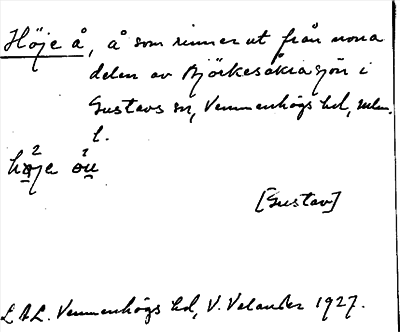 Höje å, å som rinner ut från norra
delen av Björkesåkrasjön i
Gustavs sn, Vemmenhögs hd, Malm.
l.
høje ou
[Gustav]
LAL. Vemmenhögs hd, V. Velander 1927.